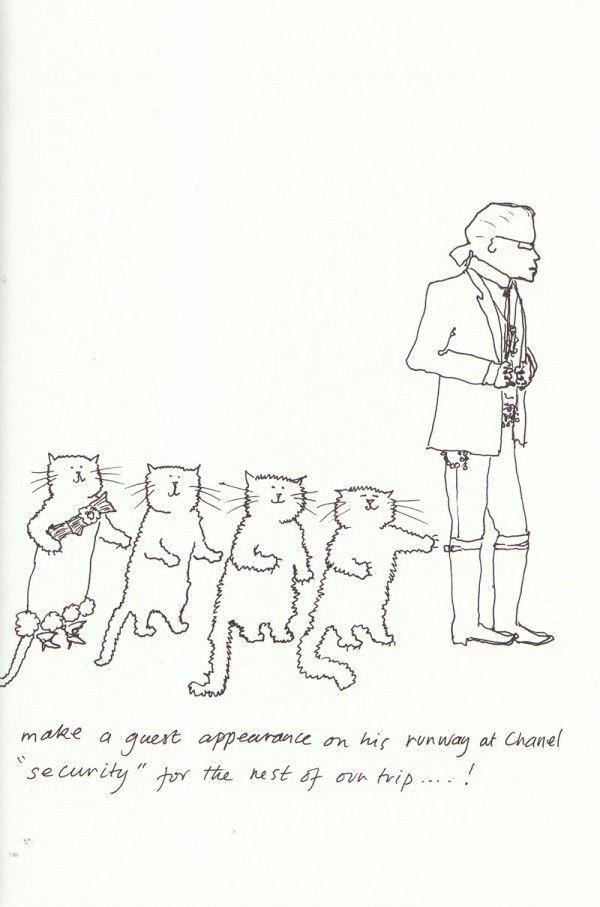 make a guest appearance on his runway at Chanel
"security" for the rest of our trip....!